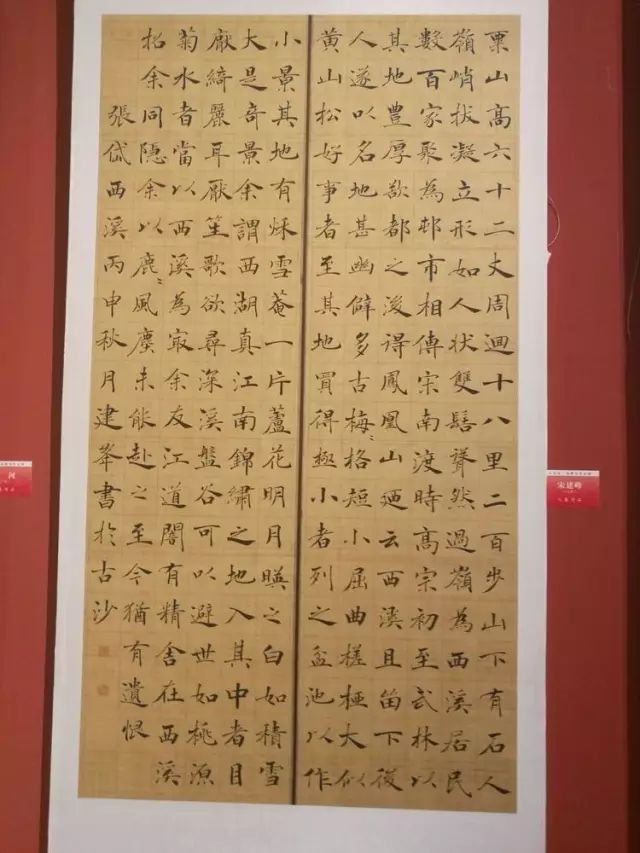 栗山髙六十二丈周迴十八里二百步山下有石人
嶺峭拔凝立形如人狀雙髻聳然過嶺為西溪居民
數百家聚為邨市相傳宋南渡時髙宗初至武林以
其地豊厚欲都之後得鳳凰山迺云西溪且留下後
人遂以名地甚幽僻多古梅〻格短小屈曲槎椏大似
黃山松好事者至其地買得極小者列之盆池以作
小景其地有秌雪菴一片蘆花明月暎之白如積雪
大是奇景余謂西湖真江南錦繡之地入其中者目
厭綺麗耳厭笙歌欲尋深溪盤谷可以避世如桃源
菊水者當以西溪為冣余友江道闇有精舍在西溪
招余同隱余以鹿〻風塵未能赴之至今猶有遺恨
張岱西溪丙申秋月建峯書於古沙
宋建峰